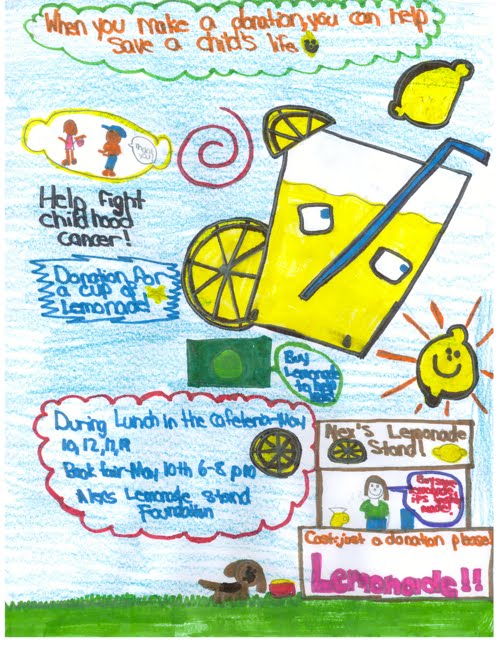 When you make a donation, you can help
save a child's life
Thank you!
Help Fight
childhood
cancer!
Donation for
a cup of
Lemonade!
Buy
Lemonade
to help
During Lunch in the cafeteria-May
10, 12, 17, 19
Book fair-May 10th 6-8 pm
Alex's Lemonade Stand
Foundation
Alex's Lemonade
Stand!
Cost: just a donation please!
Lemonade!!